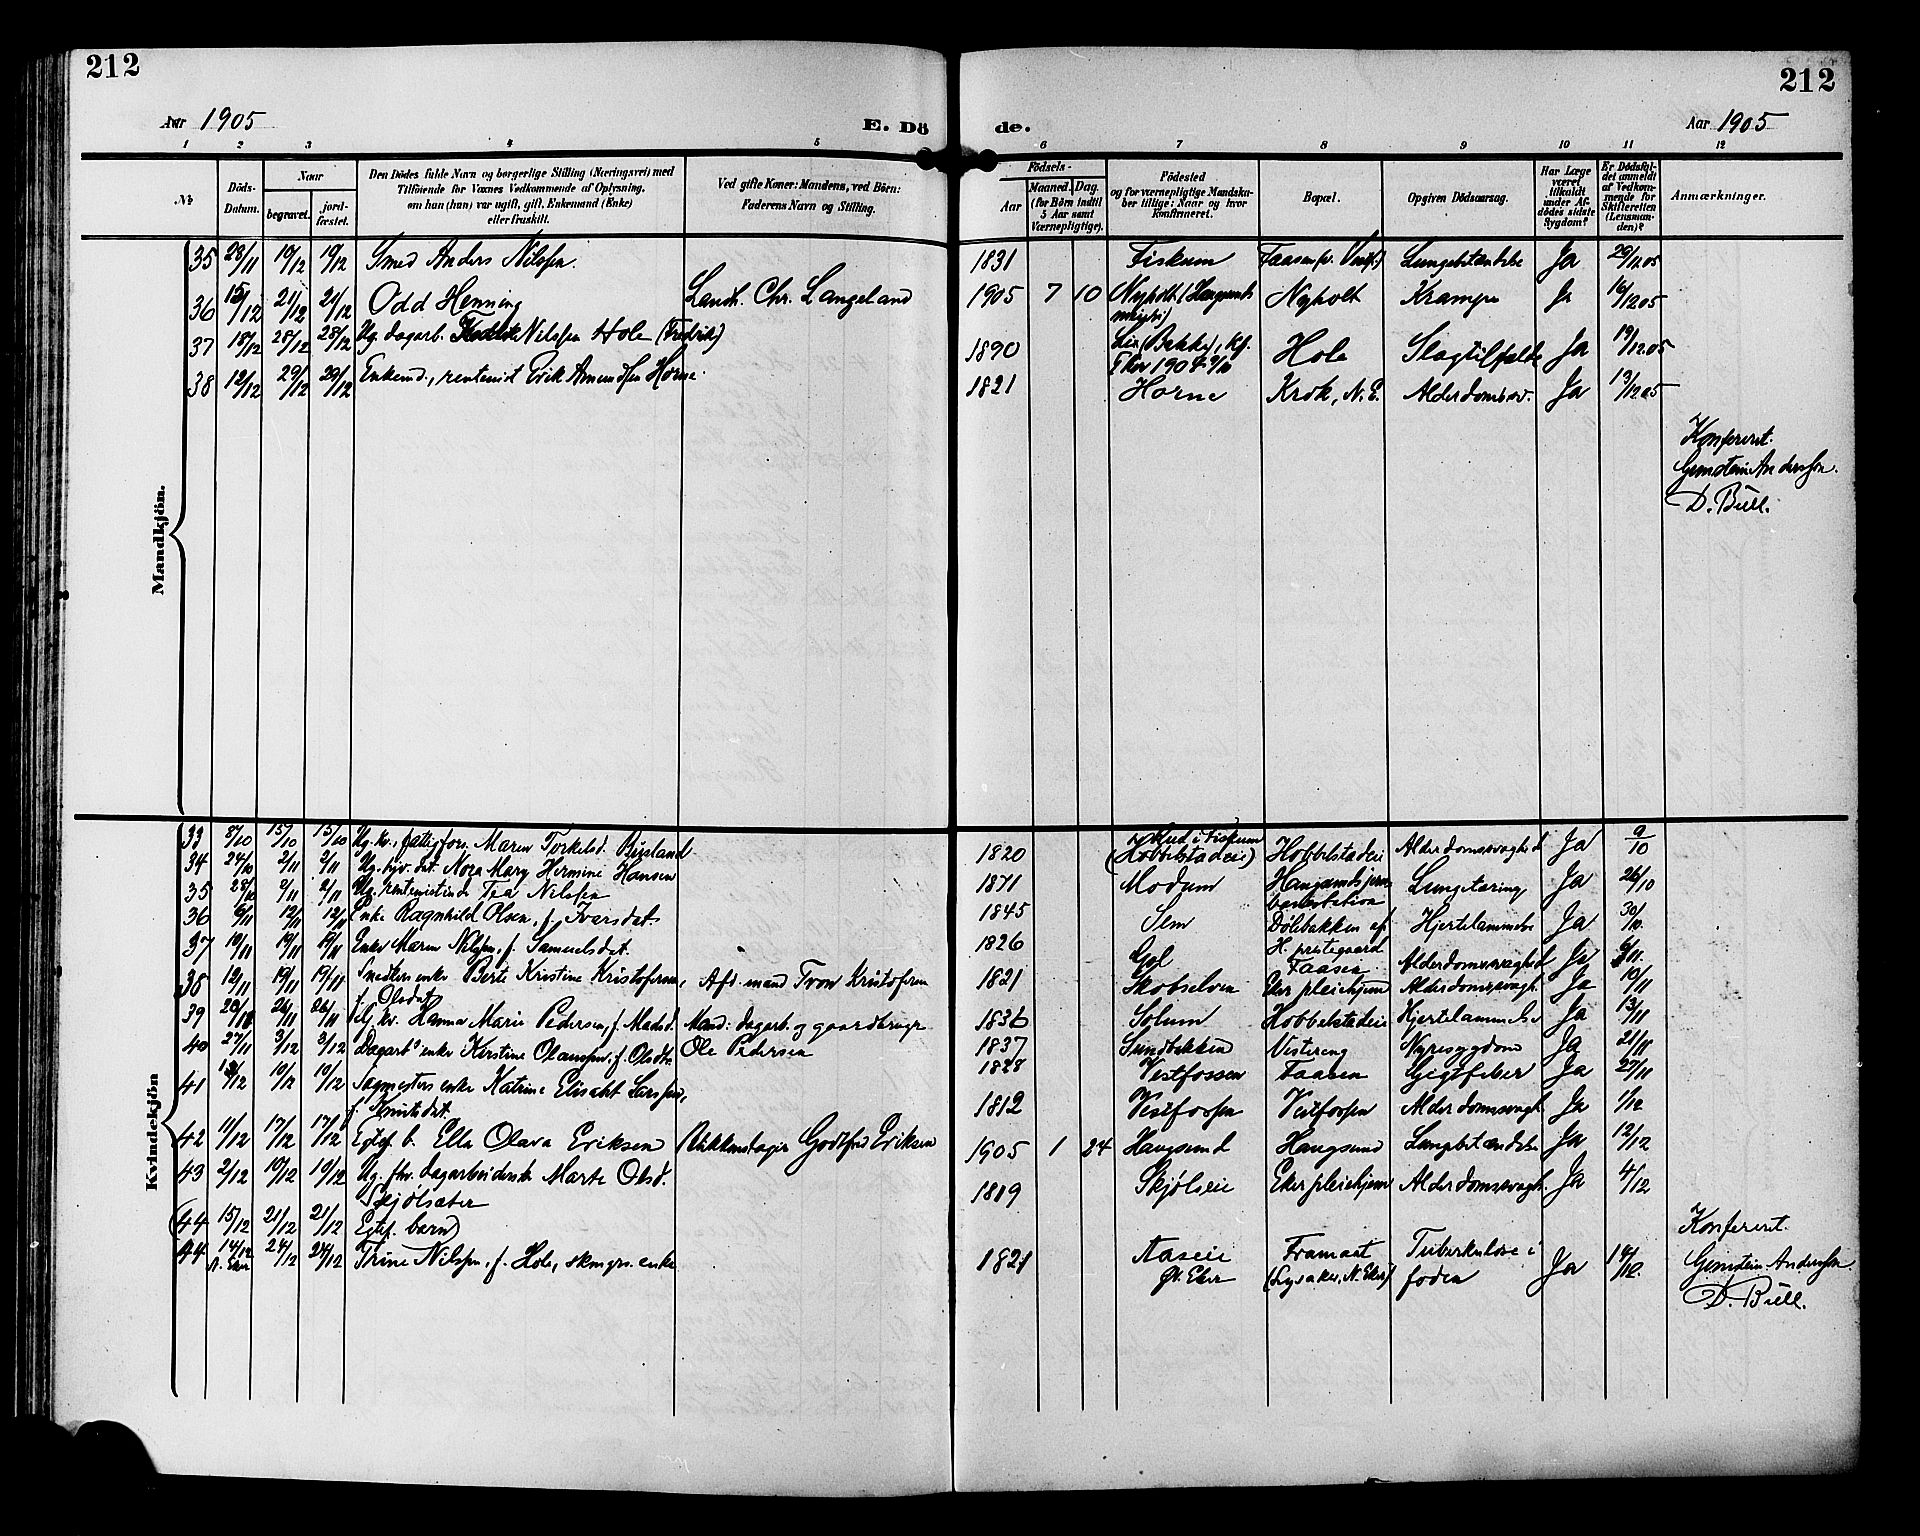 212
212
Aar 1905
E. Dö
de.
Aar 1905
1 2 3 4 5 6 7 8 9 10 11 12
No
Döds-Datum.
Naar
begravet.
jordfæstet.
Den Dödes fulde Navn og borgerlige Stilling (Næringsvei) med
Tilföiende for Voxnes Vedkommende af Oplysning,
om han (hun) var ugift, gift, Enkemand (Enke)
eller fraskilt.
Ved gifte Koner: Mandens, ved Börn:
Faderens Navn og Stilling.
Födsels-
Aar
Maaned. Dag.
(for Börn indtil
5 Aar samt
Værnepligtige).
Födested
og for værnepligtige Mandska-
ber tillige: Naar og hvor
Konfirmeret.
Bopæl.
Opgiven Dödsaarsag.
Har Læge
været
tilkaldt
under Af-
dödes sidste
Sygdom?
Er Dödsfal-
det anmeldt
af Vedkom-
mende for
Skifteretten
(Lensman-
den)?
Anmærkninger.
Mandkjön.
35 28/11 19/12 19/12 Smed Anders Nilssen. 1831 Fiskum Faasen (v. Vestf.) Lungebetændelse Ja 29/11.05
36 15/12 21/12 21/12 Odd Henning Landh. Chr. Langeland 1905 7 10 Nyholt (Haugsunds Nyholt Krampe Ja 16/12.05
37 18/12 28/12 28/12 Ug. dagarb. Nilssen Hole (Fredrik) 1890 Lier (Bakke), Kf. Hole Slagtilfælde Ja 19/12.05
Eker 1904
38 12/12 29/12 29/12 Enkemd., rentenist Erik Amundsen Horne. 1821 Horne Krok, N. E. Alderdomssv. Ja 13/12.05
Konfereret.
Gunstein Anderssen.
D. Bull.
Kvindekjön
33 8/10 15/10 15/10 Ug. kv., fattigfors. Maren Torkelsd. Rusland 1820 i Fiskum (Hobbelstadeie) Hobbelstadeie Alderdomssvaghed Ja 9/10
34 24/10 2/11 2/11 Ug. syv. dat. Nora Mary Hermine Hansen 1871 Modum Haugsunds jern- Lungetæring Ja 26/10
banestation
35 28/10 2/11 2/11 Ug. rentenistinde Tea Nilssen 1845 Sem Dölebakken af Hjertelammelse Ja 30/10.
H. prestegaard
36 6/11 12/11 12/11 Enke Ragnhild Olsen, f. Ivarsdat. 1826 Gol Faasen Alderdomssvaghed Ja 6/11.
37 10/11 19/11 19/11 Enke Maren Nilssen, f. Samuelsdat. 1821 Skobselven Eker pleiehjem Alderdomssvagh. Ja 10/11
38 12/11 19/11 19/11 Snedkers enke Berte Kristine Kristofersen, Afd. mand Tron Kristofersen 1836 Solum Hobbelstadeie Hjertelammelse Ja 13/11
f. Olsdat.
39 20/11 26/11 26/11 kv. Hanna Marie Pedersen, f. Madsd. Mand: dagarb. og gaardbruger 1837 Sundbakken Vestereng Nyresygdom Ja 21/11
Ole Pedersen
40 27/11 3/12 3/12 Dagarb.s enke Kerstine Olaussen, f. Olsdt. 1828 Vestfossen Faasen Gigtfeber Ja 27/11
41 10/12 10/12 Sagmesters enke Katrine Elisabt Larssen, 1812 Vestfossen Vestfossen Alderdomssvagh. Ja 1/12
f. Knutsdat.
42 11/12 17/12 17/12 Egtef. b. Ella Olava Eriksen Godtfred Eriksen 1905 1 24 Haugsund Haugsund Lungebetændelse Ja 12/12
43 2/12 10/12 10/12 Ug. fhv. dagarbeiderske Marte Olsd. 1819 Skjølseie Eker pleiehjem Alderdomssvagh. Ja 4/12
Skjølsæter
(44 15/12 21/12 21/12 Egtef. barn)
44 14/12 24/12 24/12 Trine Nilssen, f. Hole, skmgrs. enke 1821 Aaseie Framnæt Tuberkulose i Ja 14/12.
N. Eker Ø. Eker (Lysaker, N. Eker) foden
Konfereret.
Gunstein Anderssen.
D. Bull.